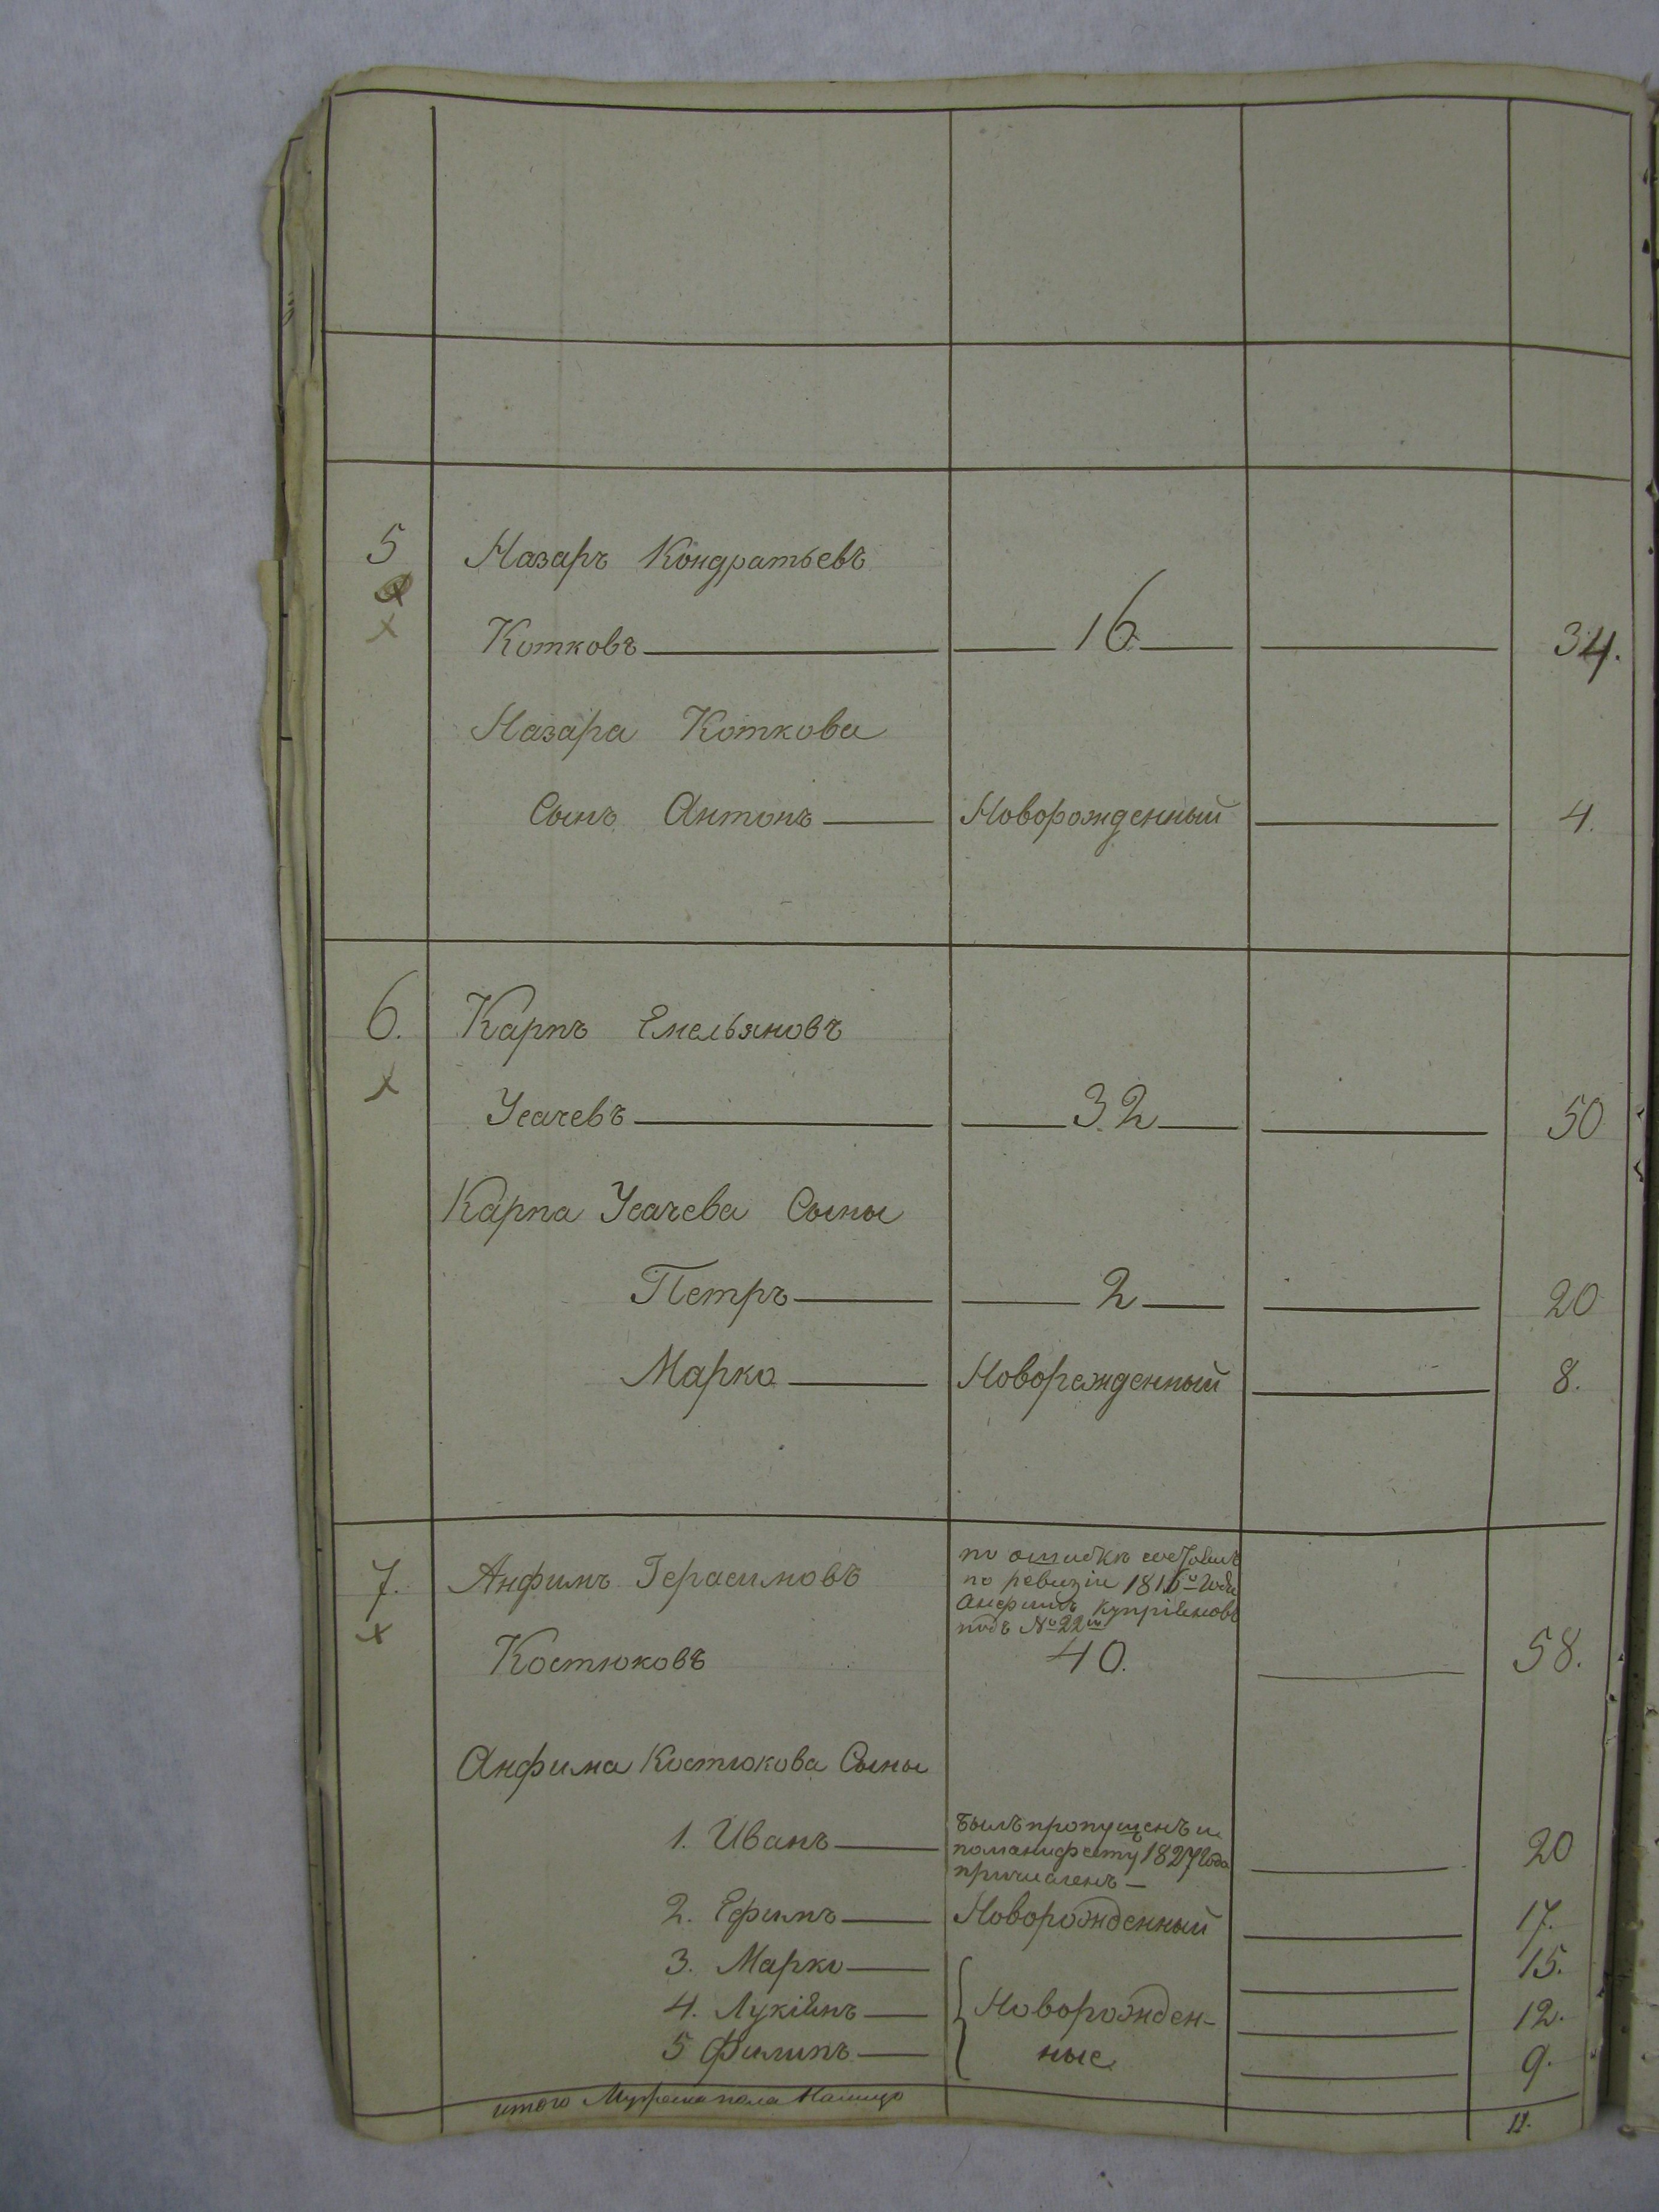 5 Назаръ Кондратьевъ
Котковъ 16 34.
Назара Коткова
Сынъ Антонъ Новорожденный 4.
6. Карпъ Емельяновъ
Усачевъ 32 50
Карпа Усачева Сыны
Петръ 2 20
Марко Новорожденный 8.
7. Анфимъ Герасимовъ
по ошибкѣ состоялъ
по ревизіи 1816го Года
Анфимъ Купріяновъ
подъ № 22м
Костюковъ 40. 58.
Анфима Костюкова Сыны
1. Иванъ 20
Былъ пропущенъ и
по манифесту 1827 Года
причисленъ
2. Ефимъ Новорожденный 17.
3. Марко 15.
4. Лукіянъ Новорожден- 12.
5 Филипъ ные 9.
итого Мужеска пола Налицо 11.